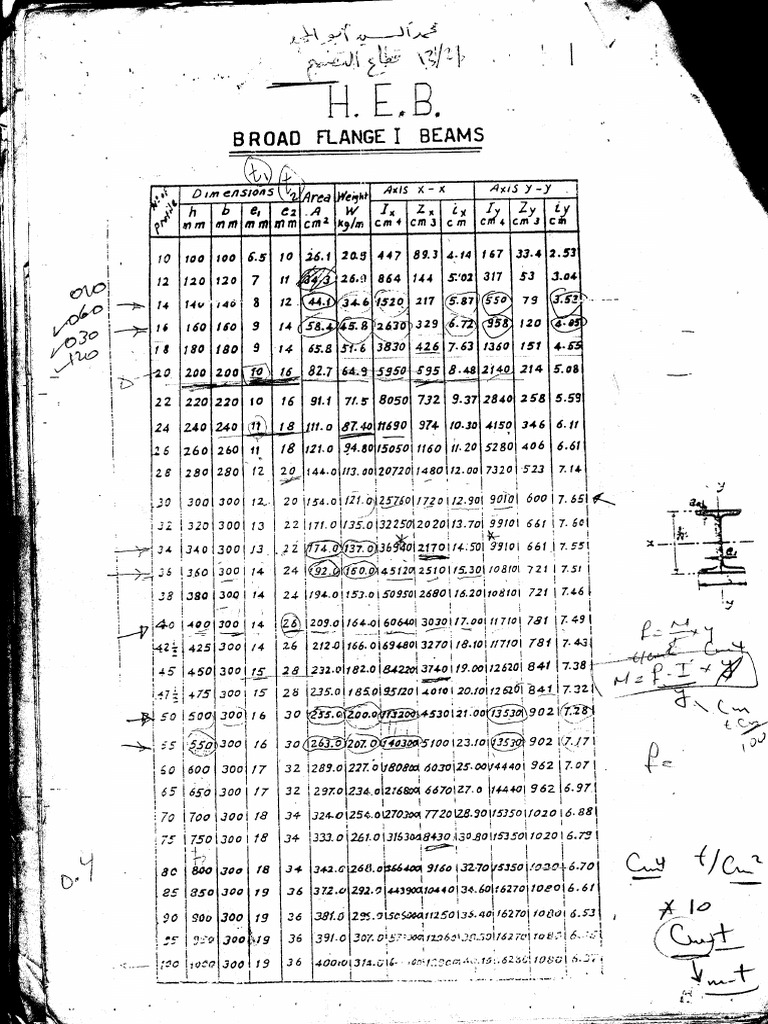 محمد السيد أبو المجد
قطاع التصميم 13/21
H.E.B.
BROAD FLANGE I BEAMS
t1 t2
Nº of profile Dimensions Area Weight Axis x-x Axis y-y
h b e1 e2 A W Ix Zx ix Iy Zy iy
mm mm mm mm cm2 kg/m cm4 cm3 cm cm4 cm3 cm
10 100 100 6.5 10 26.1 20.5 447 89.3 4.14 167 33.4 2.53
12 120 120 7 11 34.3 26.9 864 144 5.02 317 53 3.04
14 140 140 8 12 44.1 34.6 1520 217 5.87 550 79 3.53
16 160 160 9 14 58.4 45.8 2630 329 6.72 958 120 4.05
18 180 180 9 14 65.8 51.6 3830 426 7.63 1360 151 4.55
20 200 200 10 16 82.7 64.9 5950 595 8.48 2140 214 5.08
22 220 220 10 16 91.1 71.5 8050 732 9.37 2840 258 5.59
24 240 240 11 18 111.0 87.40 11690 974 10.30 4150 346 6.11
26 260 260 11 18 121.0 94.80 15050 1160 11.20 5280 406 6.61
28 280 280 12 20 144.0 113.00 20720 1480 12.00 7320 523 7.14
30 300 300 12 20 154.0 121.0 25760 1720 12.90 9010 600 7.65
32 320 300 13 22 171.0 135.0 32250 2020 13.70 9910 661 7.60
34 340 300 13 22 174.0 137.0 36940 2170 14.50 9910 661 7.55
36 360 300 14 24 192.0 150.0 45120 2510 15.30 10810 721 7.51
38 380 300 14 24 194.0 153.0 50950 2680 16.20 10810 721 7.46
40 400 300 14 26 209.0 164.0 60640 3030 17.00 11710 781 7.49
42½ 425 300 14 26 212.0 166.0 69480 3270 18.10 11710 781 7.43
45 450 300 15 28 232.0 182.0 84220 3740 19.00 12620 841 7.38
47½ 475 300 15 28 235.0 185.0 95120 4010 20.10 12620 841 7.32
50 500 300 16 30 255.0 200.0 113200 4530 21.00 13530 902 7.28
55 550 300 16 30 263.0 207.0 140300 5100 23.10 13530 902 7.17
60 600 300 17 32 289.0 227.0 180800 6030 25.00 14440 962 7.07
65 650 300 17 32 297.0 234.0 216800 6670 27.0 14440 962 6.97
70 700 300 18 34 324.0 254.0 270300 7720 28.90 15350 1020 6.88
75 750 300 18 34 333.0 261.0 316300 8430 30.80 15350 1020 6.79
80 800 300 18 34 342.0 268.0 366400 9160 32.70 15350 1020 6.70
85 850 300 19 36 372.0 292.0 443900 10440 34.60 16270 1080 6.61
90 900 300 19 36 381.0 299.0 506000 11250 36.40 16270 1080 6.53
95 950 300 19 36 391.0 307.0 16270 1080
100 1000 300 19 36 400.0 314.0 1080
060
030
120
0.4
y
x
e1
y
f = M/I × y
M = f·I/y
Cm
t Cm
100
f =
Cm4 t/Cm2
× 10
Cm t
m-t